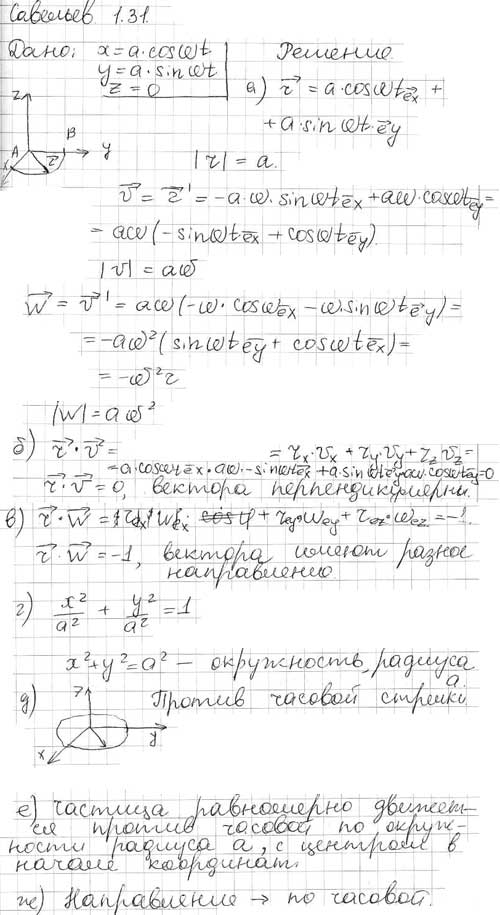 Савельев 1.31.
Дано: x = a·cosωt
y = a·sinωt
z = 0
Решение
а) r⃗ = a·cosωt e⃗x +
+ a·sinωt·e⃗y
z
B
A
y
x
r⃗
|r| = a.
v⃗ = r⃗' = -a·ω·sinωt e⃗x + aω·cosωt e⃗y =
= aω(-sinωt e⃗x + cosωt e⃗y).
|v| = aω
w⃗ = v⃗' = aω(-ω·cosωt e⃗x - ω·sinωt e⃗y) =
= -aω²(sinωt e⃗y + cosωt e⃗x) =
= -ω²r
|w| = aω²
б) r⃗·v⃗ = = rx·vx + ry·vy + rz·vz =
= a·cosωt ex·aω·-sinωt ex + a·sinωt ey·aω·cosωt ey = 0
r⃗·v⃗ = 0, вектора перпендикулярны.
в) r⃗·w⃗ = rex·wex + rey·wey + rez·wez = -1.
r⃗·w⃗ = -1, вектора имеют разное
направление
г) x²/a² + y²/a² = 1
x² + y² = a² – окружность радиуса
a.
д) Против часовой стрелки
z
y
x
е) Частица равномерно движет-
ся против часовой по окруж-
ности радиуса a, с центром в
начале координат.
ж) Направление → по часовой.